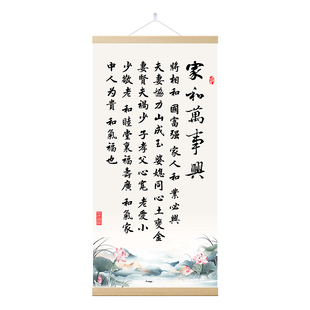 家和萬事興
將相和 國富强 家人和 業必興
夫妻協力山成玉 婆媳同心土變金
妻賢夫禍少 子孝父心寬 老愛小
少敬老 和睦堂裏福壽廣 和氣家
中人為貴 和氣福也